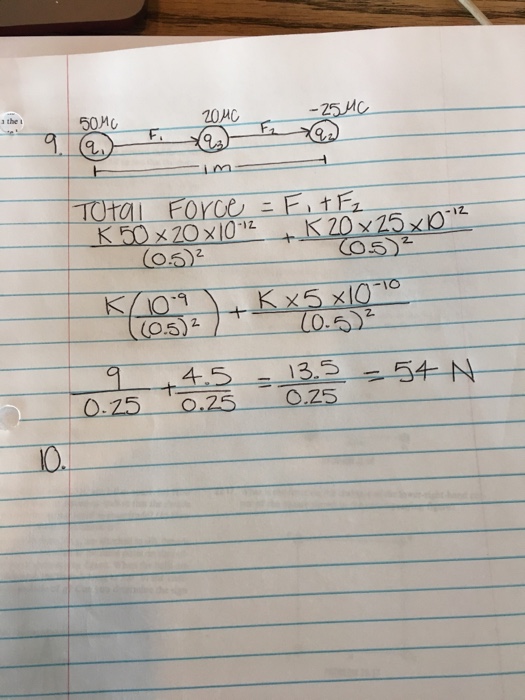 50μC 20μC -25μC
9. q₁ F₁ q₃ F₂ q₂
1m
Total Force = F₁ + F₂
K 50 × 20 × 10⁻¹² / (0.5)² + K 20 × 25 × 10⁻¹² / (0.5)²
K (10⁻⁹ / (0.5)²) + K × 5 × 10⁻¹⁰ / (0.5)²
9 / 0.25 + 4.5 / 0.25 = 13.5 / 0.25 = 54 N
10.